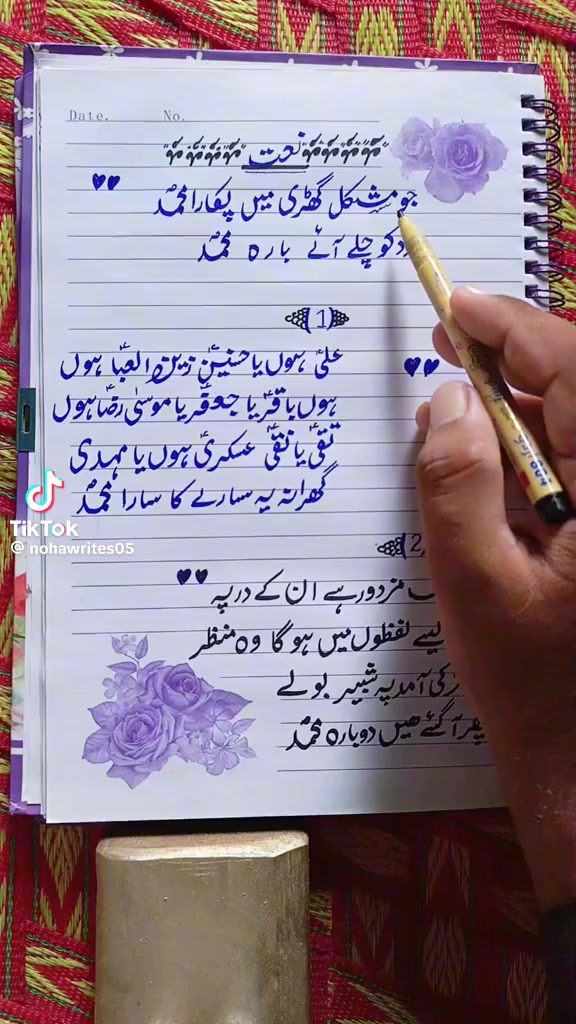 Date. No.
نعت
جو مشکل گھڑی میں پکارا محمدؐ
کو چلے آئے بارہ محمدؐ
(1)
علیؑ ہوں یا حسنینؑ زین العباؑ ہوں
ہوں باقرؑ یا جعفرؑ یا موسیٰؑ رضاؑ ہوں
تقیؑ یا نقیؑ عسکریؑ ہوں یا مہدی
گھرانہ یہ سارے کا سارا محمدؐ
(2
مزدور ہے ان کے در پہ
لفظوں میں ہو گا وہ منظر
کی آمد پہ شبیر بولے
پھر آ گئے ھیں دوبارہ محمدؐ
TikTok
@nohawrites05